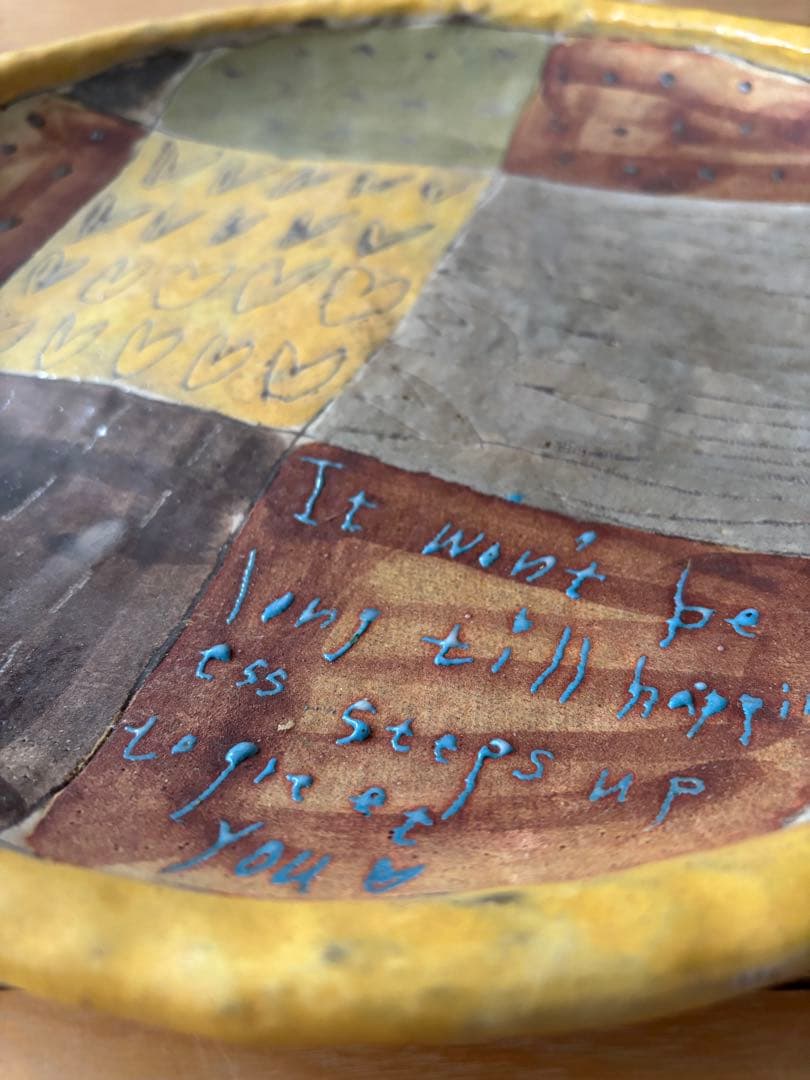 It won't be
long till happi
ess steps up
to greet
you